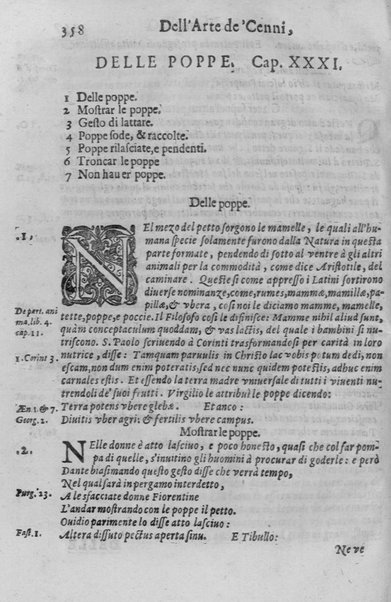 358 Dell'Arte de'Cenni,
DELLE POPPE. Cap. XXXI.
1 Delle poppe.
2 Mostrar le poppe.
3 Gesto di lattare.
4 Poppe sode, & raccolte.
5 Poppe rilasciate, e pendenti.
6 Troncar le poppe
7 Non hauer poppe.
Delle poppe.
.1. NEl mezo del petto sorgono le mamelle, le quali all'hu-
mana specie solamente furono dalla Natura in questa
parte formate, pendendo di sotto al ventre à gli altri
animali per la commodità, come dice Aristotile, del
caminare. Queste si come appresso i Latini sortirono
diuerse nominanze, come, rumes, mamma, mamilla, pa-
pilla, & vbera, così noi le diciamo mamme, mamelle,
De part. ani tette, poppe, e poccie. Il Filosofo così le difinisce: Mamme nihil aliud sunt,
ma.lib. 4. quàm conceptaculum quoddam, & vas lactis, del quale i bambini si nu-
cap. 11. triscono. S. Paolo scriuendo à Corinti trasformandosi per carità in loro
1. Corint 3. nutrice, disse: Tamquam paruulis in Christo lac vobis potum dedi, non
escam, non dum enim poteratis, sed nec nunc quidem potestis, adhuc enim
carnales estis. Et essendo la terra madre vniuersale di tutti i viuenti nu-
trendoli de' suoi frutti. Virgilio le attribuì le poppe dicendo:
Æn. 1. & 7. Terra potens vbere glebæ. Et anco:
Georg. 2. Diuitis vber agri: & fertilis vbere campus.
Mostrar le poppe.
.2. NElle donne è atto lasciuo, e poco honesto, quasi che col far pom-
pa di quelle, s'inuitino gli huomini à procurar di goderle: e però
Dante biasimando questo gesto disse che verrà tempo,
Nel qual sarà in pergamo interdetto,
Purg. 23. A le sfacciate donne Fiorentine
L'andar mostrando con le poppe il petto.
Ouidio parimente lo disse atto lasciuo:
Fast. 1. Altera diffuso pectus aperta sinu. E Tibullo:
Ne ve